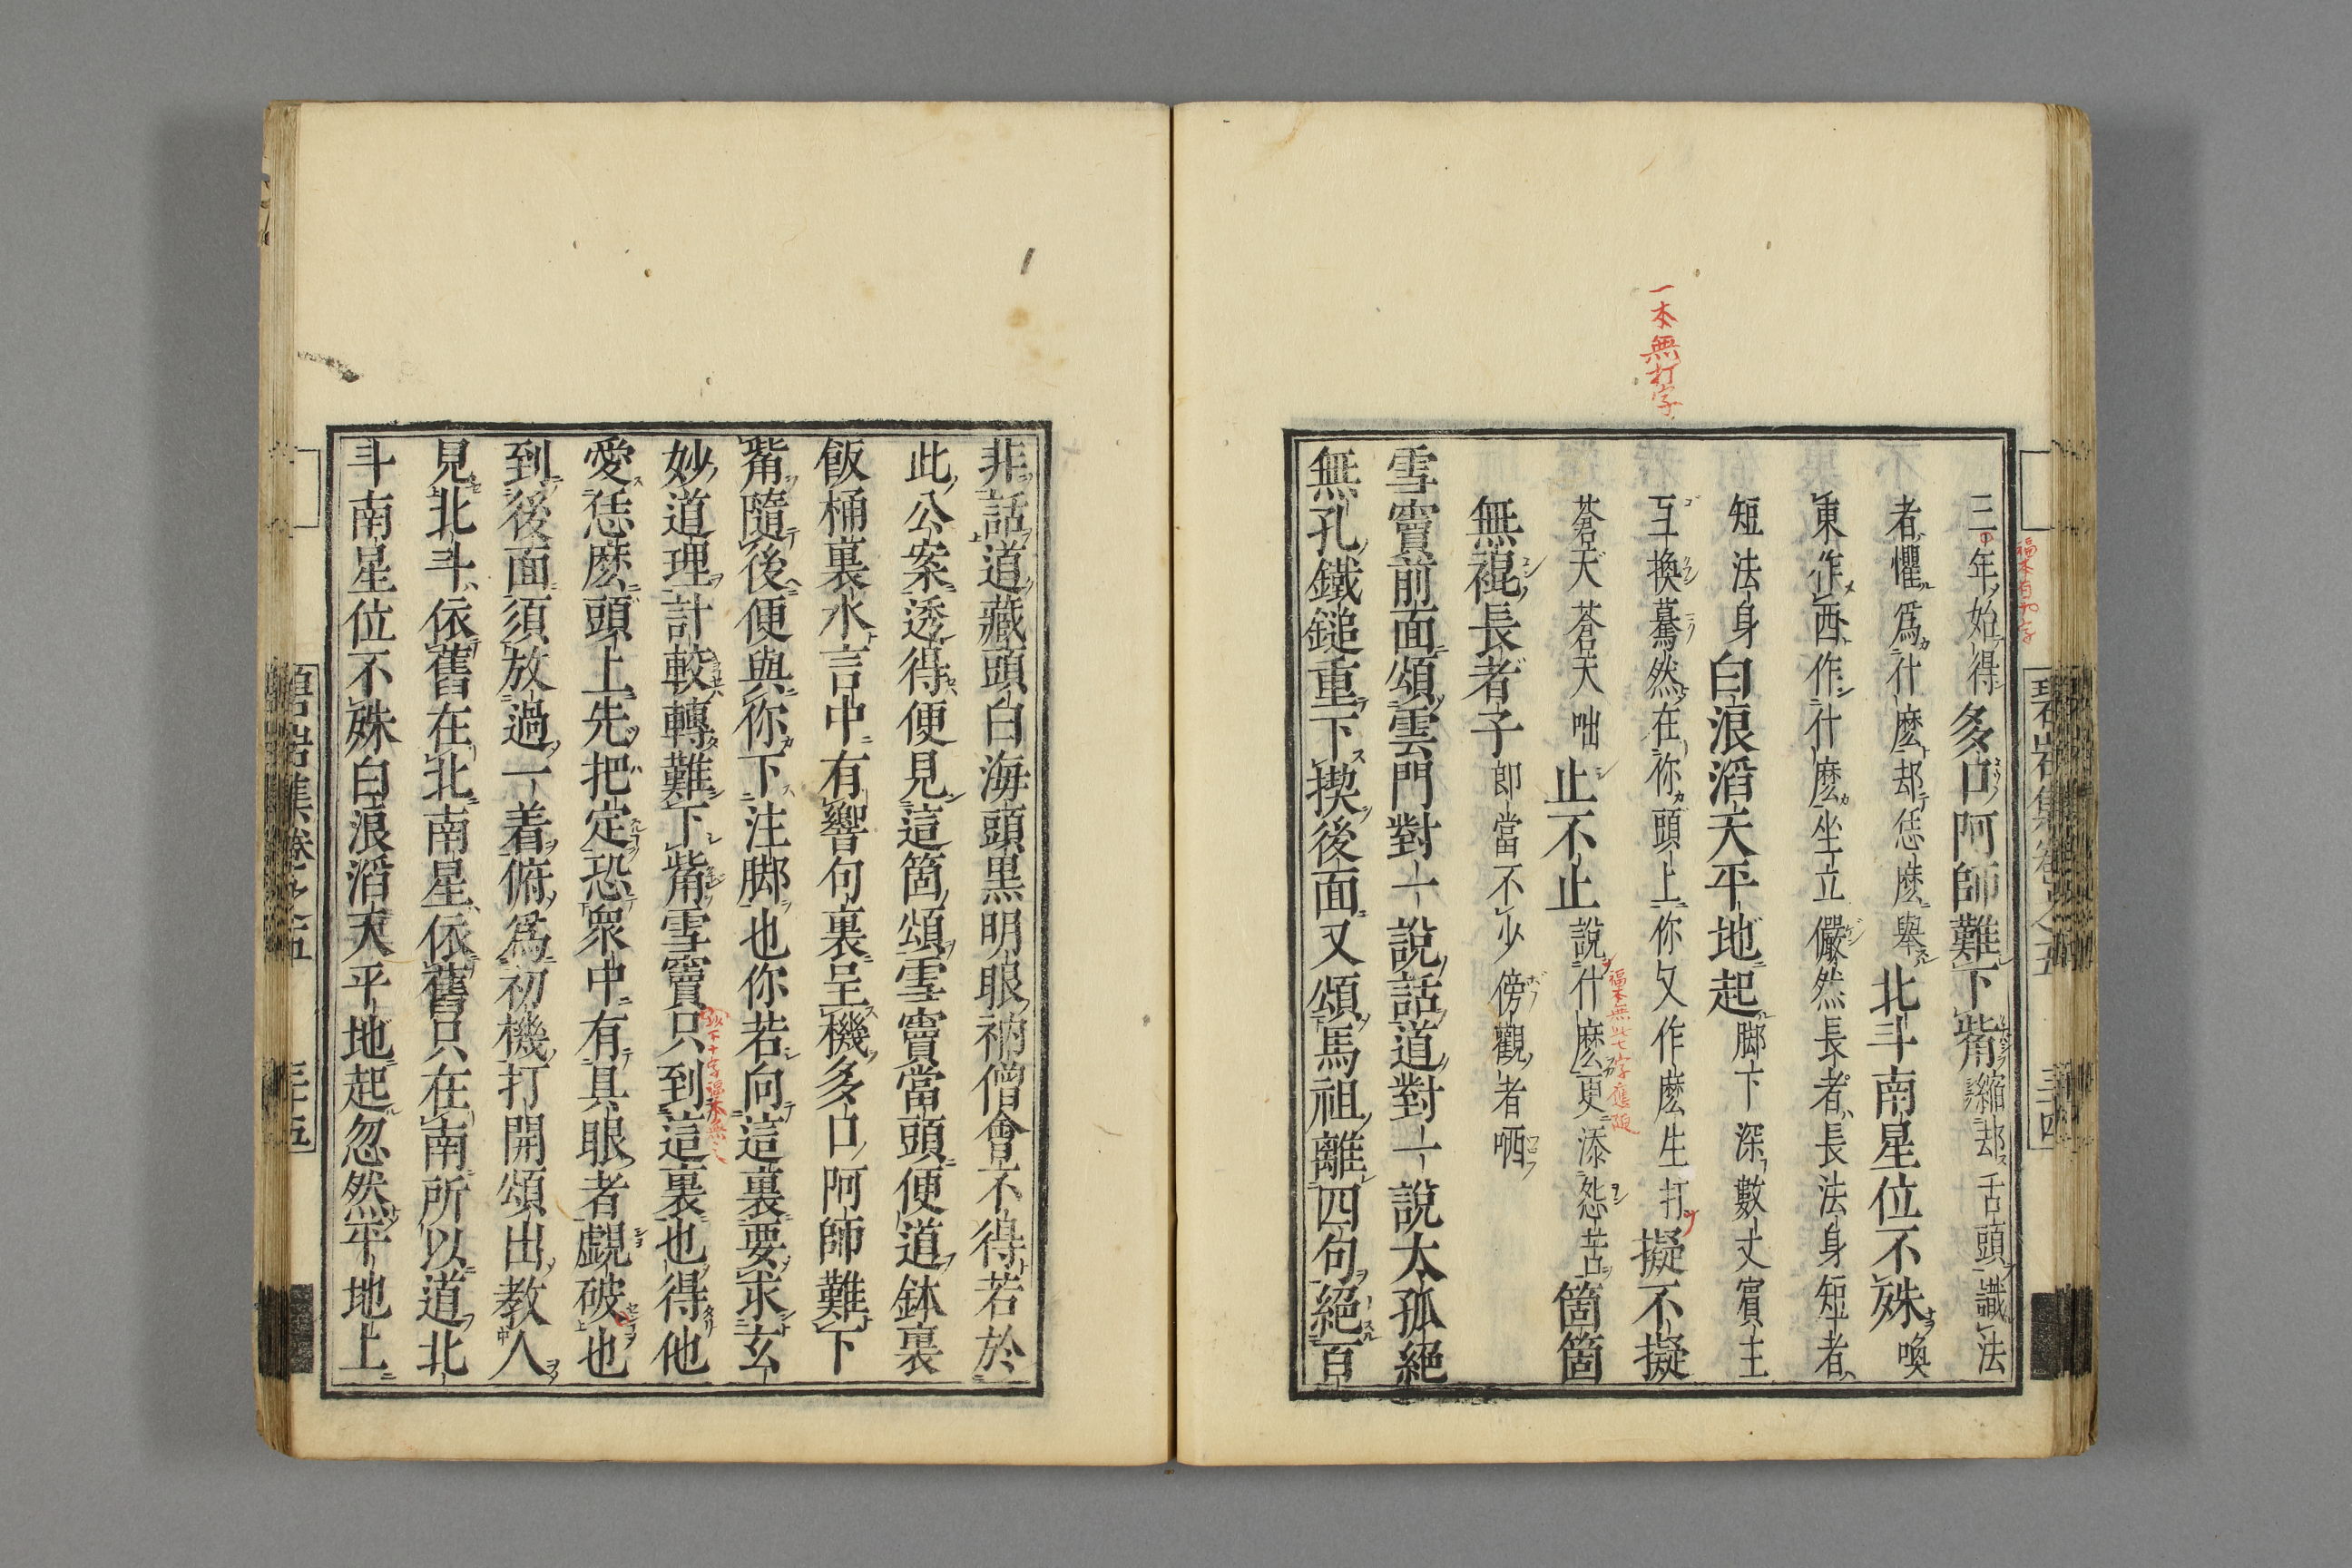 一本無打字
福本有和字
三年始得多口阿師難下觜縮却舌頭識法
者懼爲什麽却恁麽擧北斗南星位不殊喚
東作西作什麽坐立儼然長者長法身短者
短法身白浪滔天平地起脚下深數丈賓主
互換驀然在你頭上你又作麽生打擬不擬
蒼天蒼天咄止不止說什麽更添怨苦箇箇
福本無此七字應隨
無裩長者子郎當不少傍觀者哂
雪竇前面頌雲門對一說話道對一說太孤絕
無孔鐵鎚重下揳後面又頌馬祖離四句絕百
碧岩集卷之五 三十四
非話道藏頭白海頭黑明眼衲僧會不得若於
此公案透得便見這箇頌雪竇當頭便道鉢裏
飯桶裏水言中有響句裏呈機多口阿師難下
觜隨後便與你下注脚也你若向這裏要求玄
妙道理計較轉難下觜雪竇只到這裏也得他
以下十字福本無之
愛恁麽頭上先把定恐衆中有具眼者覷破也
到後面須放過一着俯爲初機打開頌出教人
見北斗依舊在北南星依舊只在南所以道北
斗南星位不殊白浪滔天平地起忽然平地上
碧岩集卷之五 三十五